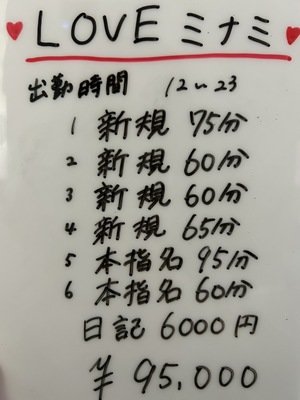 ♥LOVEミナミ♥
出勤時間 12〜23
1 新規 75分
2 新規 60分
3 新規 60分
4 新規 65分
5 本指名 95分
6 本指名 60分
日記 6000円
¥ 95,000